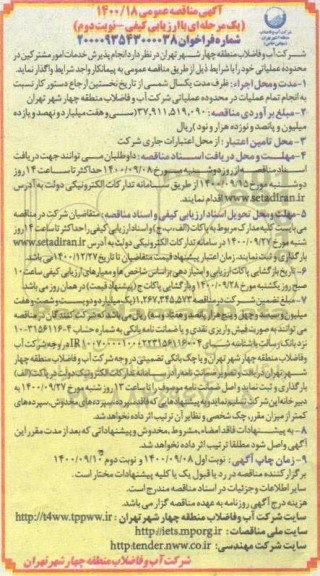 آگهی مناقصه عمومی ۱۴۰۰/۱۸
(یک مرحله‌ای با ارزیابی کیفی - نوبت دوم)
شماره فراخوان ۲۰۰۰۰۹۳۵۴۳۰۰۰۰۳۸
شرکت آب و فاضلاب منطقه چهار شهر تهران در نظر دارد انجام پذیرش خدمات امور مشترکین در
محدوده عملیاتی خود را با شرایط ذیل از طریق مناقصه عمومی به پیمانکار واجد شرایط واگذار نماید.
۱- مدت و محل اجراء: ظرف مدت یکسال شمسی از تاریخ نخستین ارجاع دستور کار نسبت
به انجام تمام عملیات در محدوده عملیاتی شرکت آب و فاضلاب منطقه چهار شهر تهران
۲- مبلغ برآوردی مناقصه: ۳۷,۹۱۱,۵۱۹,۰۹۰ (سی و هفت میلیارد و نهصد و یازده
میلیون و پانصد و نوزده هزار و نود) ریال
۳- محل تامین اعتبار: از محل اعتبارات جاری شرکت
۴- مهلت و محل دریافت اسناد مناقصه: داوطلبان می توانند جهت دریافت
اسناد مناقصه از روز دوشنبه مورخ ۱۴۰۰/۰۹/۰۸ حداکثر تا ساعت ۱۴ روز
دوشنبه مورخ ۱۴۰۰/۰۹/۱۵ از طریق سامانه تدارکات الکترونیکی دولت به آدرس
www.setadiran.ir اقدام نمایند.
۵- مهلت و محل تحویل اسناد ارزیابی کیفی و اسناد مناقصه: متقاضیان شرکت در مناقصه
می بایست کلیه مدارک مربوط به پاکات (الف، ب، ج) و اسناد ارزیابی کیفی را حداکثر تا ساعت ۱۴ روز
شنبه مورخ ۱۴۰۰/۰۹/۲۷ در سامانه تدارکات الکترونیکی دولت به آدرس www.setadiran.ir
بارگذاری و ثبت نمایند. زمان اعتبار پیشنهاد قیمت متقاضیان تا تاریخ ۱۴۰۰/۱۲/۲۷ می باشد.
۶- تاریخ بازگشایی پاکات ارزیابی و امتیازدهی براساس شاخص ها و معیارهای ارزیابی کیفی ساعت ۱۰
صبح روز یکشنبه مورخ ۱۴۰۰/۰۹/۲۸ و بازگشایی پاکات ج (پیشنهاد قیمت) در همان روز می باشد
۷- مبلغ تضمین شرکت در مناقصه ۱,۲۶۷,۳۴۵,۵۷۳ (یک میلیارد و دویست و شصت و هفت
میلیون و سیصد و چهل و پنج هزار پانصد و هفتاد و سه) ریال می باشد که شرکت کنندگان در مناقصه
می توانند به صورت فیش واریزی نقدی و یا ضمانت نامه بانکی به شماره حساب ۴-۳۱۵۶۱۱۶-۱۰
نزد بانک رسالت با شناسه شبای در وجه شرکت آب
وفاضلاب منطقه چهار شهر تهران و یا چک بانکی تضمینی در وجه شرکت آب و فاضلاب منطقه چهار
شهر تهران دریافت و تصویر ضمانت نامه را در سامانه تدارکات الکترونیک دولت در پاکت (الف)
بارگذاری و ثبت نماید و اصل ضمانت نامه موصوف را تا ساعت ۱۳ روز شنبه مورخ ۱۴۰۰/۰۹/۲۷ به
دبیرخانه این شرکت تسلیم نماید و به پیشنهادهایی که فاقد سپرده، سپرده های مخدوش، سپرده های
کمتر از میزان مقرر، چک شخصی و نظایر آن ترتیب اثر داده نخواهد شد.
۸- به پیشنهادات فاقد امضاء، مشروط، مخدوش و پیشنهاداتی که بعد از مدت مقرر این
آگهی واصل شود مطلقا ترتیب اثر داده نخواهد شد.
۹- زمان چاپ آگهی: نوبت اول ۱۴۰۰/۰۹/۰۸ و نوبت دوم ۱۴۰۰/۰۹/۱۰
برگزار کننده مناقصه در رد یا قبول یک یا کلیه پیشنهادات مختار است.
سایر اطلاعات و جزئیات در اسناد مناقصه مندرج است.
هزینه درج آگهی روزنامه به عهده مناقصه گزار می باشد.
سایت شرکت آب و فاضلاب منطقه چهار شهر تهران: http://t4ww.tppww.ir
سایت ملی مناقصات: http://iets.mporg.ir
سایت شرکت مهندسی: http:tender.nww.co.ir
شرکت آب و فاضلاب منطقه چهار شهر تهران